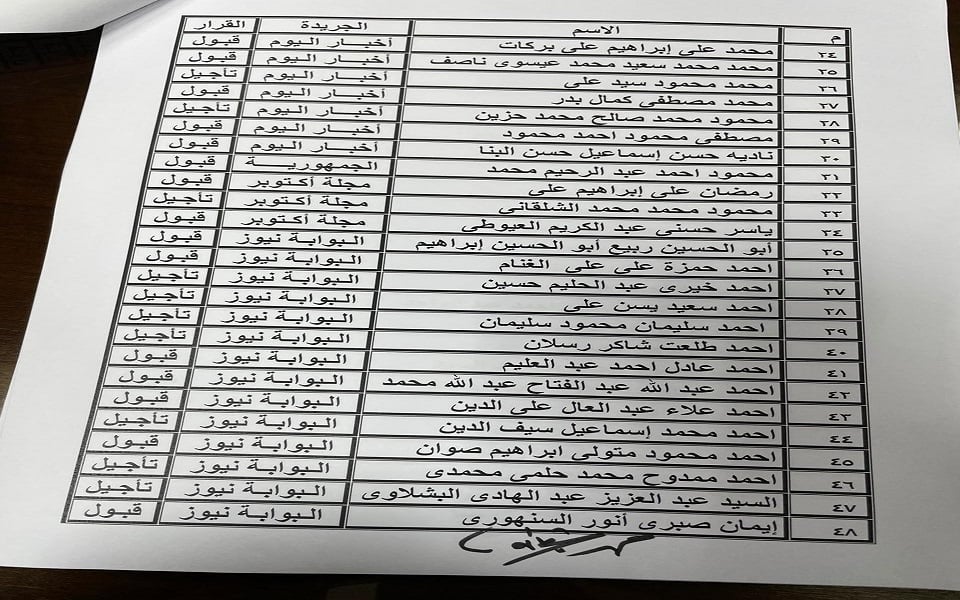 م الاسم الجريدة القرار
٢٤ محمد على إبراهيم على بركات أخبار اليوم قبول
٢٥ محمد محمد سعيد محمد عيسوى ناصف أخبار اليوم قبول
٢٦ محمد محمود سيد على أخبار اليوم تأجيل
٢٧ محمد مصطفى كمال بدر أخبار اليوم قبول
٢٨ محمود محمد صالح محمد حزين أخبار اليوم تأجيل
٢٩ مصطفى محمود احمد محمود أخبار اليوم قبول
٣٠ ناديه حسن إسماعيل حسن البنا أخبار اليوم قبول
٣١ محمود احمد عبد الرحيم محمد الجمهورية قبول
٣٢ رمضان على إبراهيم على مجلة أكتوبر قبول
٣٣ محمود محمد محمد الشلقانى مجلة أكتوبر تأجيل
٣٤ ياسر حسنى عبد الكريم العيوطى مجلة أكتوبر قبول
٣٥ أبو الحسين ربيع أبو الحسين إبراهيم البوابة نيوز قبول
٣٦ احمد حمزة على على الغنام البوابة نيوز قبول
٣٧ احمد خيرى عبد الحليم حسين البوابة نيوز تأجيل
٣٨ احمد سعيد يسن على البوابة نيوز تأجيل
٣٩ احمد سليمان محمود سليمان البوابة نيوز تأجيل
٤٠ احمد طلعت شاكر رسلان البوابة نيوز تأجيل
٤١ احمد عادل احمد عبد العليم البوابة نيوز قبول
٤٢ احمد عبد الله عبد الفتاح عبد الله محمد البوابة نيوز قبول
٤٣ احمد علاء عبد العال على الدين البوابة نيوز قبول
٤٤ احمد محمد إسماعيل سيف الدين البوابة نيوز تأجيل
٤٥ احمد محمود متولى ابراهيم صوان البوابة نيوز قبول
٤٦ احمد ممدوح محمد حلمى محمدى البوابة نيوز تأجيل
٤٧ السيد عبد العزيز عبد الهادى البشلاوى البوابة نيوز تأجيل
٤٨ إيمان صبرى أنور السنهورى البوابة نيوز قبول